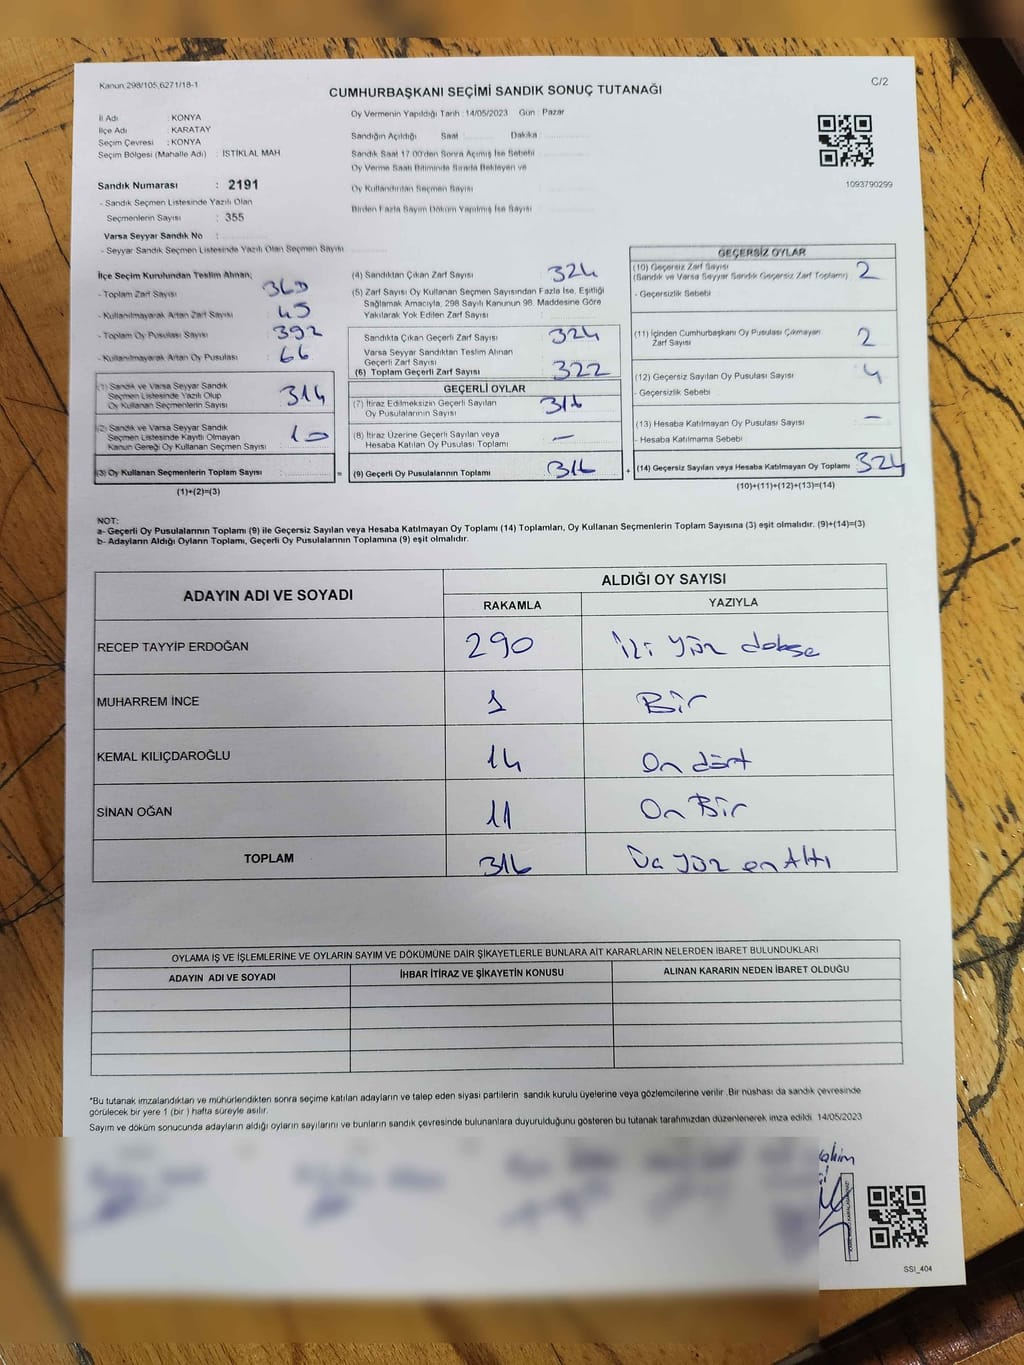 Kanun:298/105,6271/18-1
C/2
CUMHURBAŞKANI SEÇİMİ SANDIK SONUÇ TUTANAĞI
Oy Vermenin Yapıldığı Tarih :14/05/2023 Gün : Pazar
İl Adı : KONYA
İlçe Adı : KARATAY
Seçim Çevresi : KONYA
Seçim Bölgesi (Mahalle Adı) : İSTİKLAL MAH
Sandık Numarası : 2191
- Sandık Seçmen Listesinde Yazılı Olan
Seçmenlerin Sayısı : 355
Varsa Seyyar Sandık No :
- Seyyar Sandık Seçmen Listesinde Yazılı Olan Seçmen Sayısı
Sandığın Açıldığı Saat : Dakika :
Sandık Saat 17.00'den Sonra Açımış İse Sebebi
Oy Verme Saati Bitiminde Sırada Bekleyen ve
Oy Kullandırılan Seçmen Sayısı
Birden Fazla Sayım Döküm Yapılmış İse Sayısı
1093790299
İlçe Seçim Kurulundan Teslim Alınan;
- Toplam Zarf Sayısı : 360
- Kullanılmayarak Artan Zarf Sayısı : 45
- Toplam Oy Pusulası Sayısı : 392
- Kullanılmayarak Artan Oy Pusulası : 66
(1) Sandık ve Varsa Seyyar Sandık
Seçmen Listesinde Yazılı Olup
Oy Kullanan Seçmenlerin Sayısı : 314
(2) Sandık ve Varsa Seyyar Sandık
Seçmen Listesinde Kayıtlı Olmayan
Kanun Gereği Oy Kullanan Seçmen Sayısı : 10
(3) Oy Kullanan Seçmenlerin Toplam Sayısı :
(1)+(2)=(3)
(4) Sandıktan Çıkan Zarf Sayısı : 324
(5) Zarf Sayısı Oy Kullanan Seçmen Sayısından Fazla İse, Eşitliği
Sağlamak Amacıyla, 298 Sayılı Kanunun 98. Maddesine Göre
Yakılarak Yok Edilen Zarf Sayısı :
Sandıkta Çıkan Geçerli Zarf Sayısı : 324
Varsa Seyyar Sandıktan Teslim Alınan
Geçerli Zarf Sayısı :
(6) Toplam Geçerli Zarf Sayısı : 322
GEÇERLİ OYLAR
(7) İtiraz Edilmeksizin Geçerli Sayılan
Oy Pusulalarının Sayısı : 316
(8) İtiraz Üzerine Geçerli Sayılan veya
Hesaba Katılan Oy Pusulası Toplamı : —
= (9) Geçerli Oy Pusulalarının Toplamı : 316
GEÇERSİZ OYLAR
(10) Geçersiz Zarf Sayısı
(Sandık ve Varsa Seyyar Sandık Geçersiz Zarf Toplamı) : 2
- Geçersizlik Sebebi :
(11) İçinden Cumhurbaşkanı Oy Pusulası Çıkmayan
Zarf Sayısı : 2
(12) Geçersiz Sayılan Oy Pusulası Sayısı : 4
- Geçersizlik Sebebi :
(13) Hesaba Katılmayan Oy Pusulası Sayısı : —
- Hesaba Katılmama Sebebi :
+ (14) Geçersiz Sayılan veya Hesaba Katılmayan Oy Toplamı : 324
(10)+(11)+(12)+(13)=(14)
NOT:
a- Geçerli Oy Pusulalarının Toplamı (9) ile Geçersiz Sayılan veya Hesaba Katılmayan Oy Toplamı (14) Toplamları, Oy Kullanan Seçmenlerin Toplam Sayısına (3) eşit olmalıdır. (9)+(14)=(3)
b- Adayların Aldığı Oyların Toplamı, Geçerli Oy Pusulalarının Toplamına (9) eşit olmalıdır.
ADAYIN ADI VE SOYADI
ALDIĞI OY SAYISI
RAKAMLA YAZIYLA
RECEP TAYYİP ERDOĞAN 290 İki yüz dokse
MUHARREM İNCE 1 Bir
KEMAL KILIÇDAROĞLU 14 On dört
SİNAN OĞAN 11 On Bir
TOPLAM 316 Üç yüz on Altı
OYLAMA İŞ VE İŞLEMLERİNE VE OYLARIN SAYIM VE DÖKÜMÜNE DAİR ŞİKAYETLERLE BUNLARA AİT KARARLARIN NELERDEN İBARET BULUNDUKLARI
ADAYIN ADI VE SOYADI İHBAR İTİRAZ VE ŞİKAYETİN KONUSU ALINAN KARARIN NEDEN İBARET OLDUĞU
*Bu tutanak imzalandıktan ve mühürlendikten sonra seçime katılan adayların ve talep eden siyasi partilerin sandık kurulu üyelerine veya gözlemcilerine verilir .Bir nüshası da sandık çevresinde
görülecek bir yere 1 (bir ) hafta süreyle asılır.
Sayım ve döküm sonucunda adayların aldığı oyların sayılarını ve bunların sandık çevresinde bulunanlara duyurulduğunu gösteren bu tutanak tarafımızdan düzenlenerek imza edildi. 14/05/2023
SSI_404